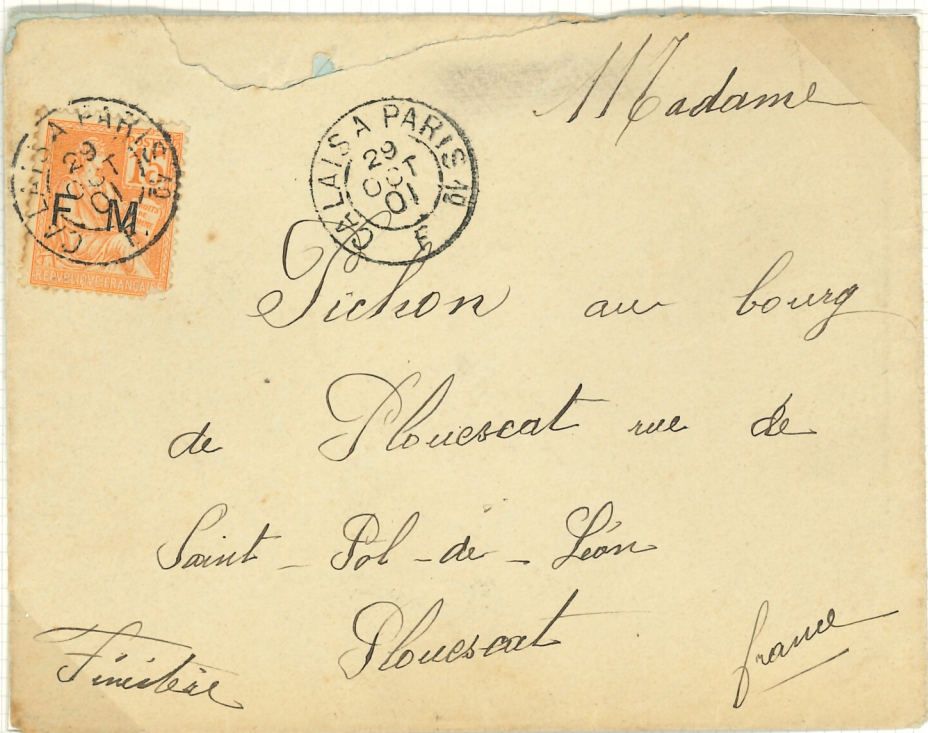 Madame
CALAIS A PARIS 1º
29
OCT
01
E
15
F. M.
REPUBLIQUE FRANÇAISE
CALAIS A PARIS 1º
29
OCT
01
E
Pichon au bourg
de Plouescat rue de
Saint - Pol - de - Léon
Plouescat
Finistère
france